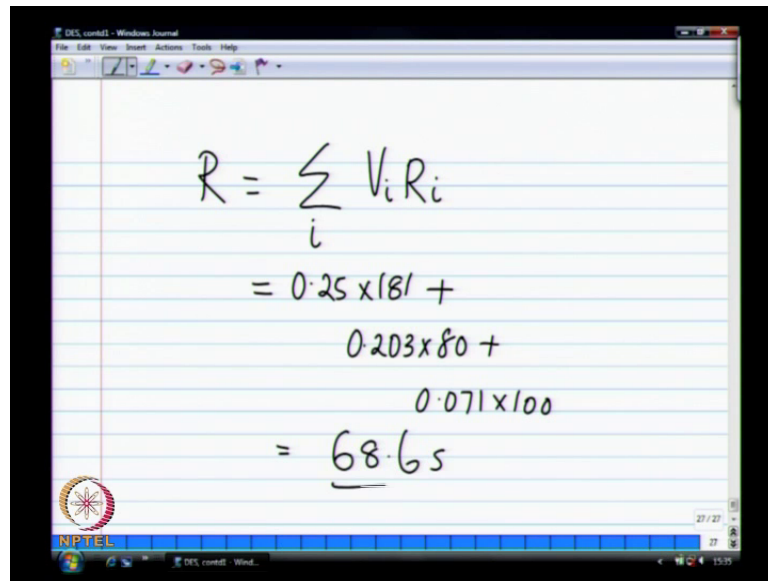 DES, contd1 - Windows Journal
File Edit View Insert Actions Tools Help
R = Σ ViRi
i
= 0.25 x 181 +
0.203 x 80 +
0.071 x 100
= 68.6 s
27 / 27
27
NPTEL
DES, contd1 - Wind...
15:35